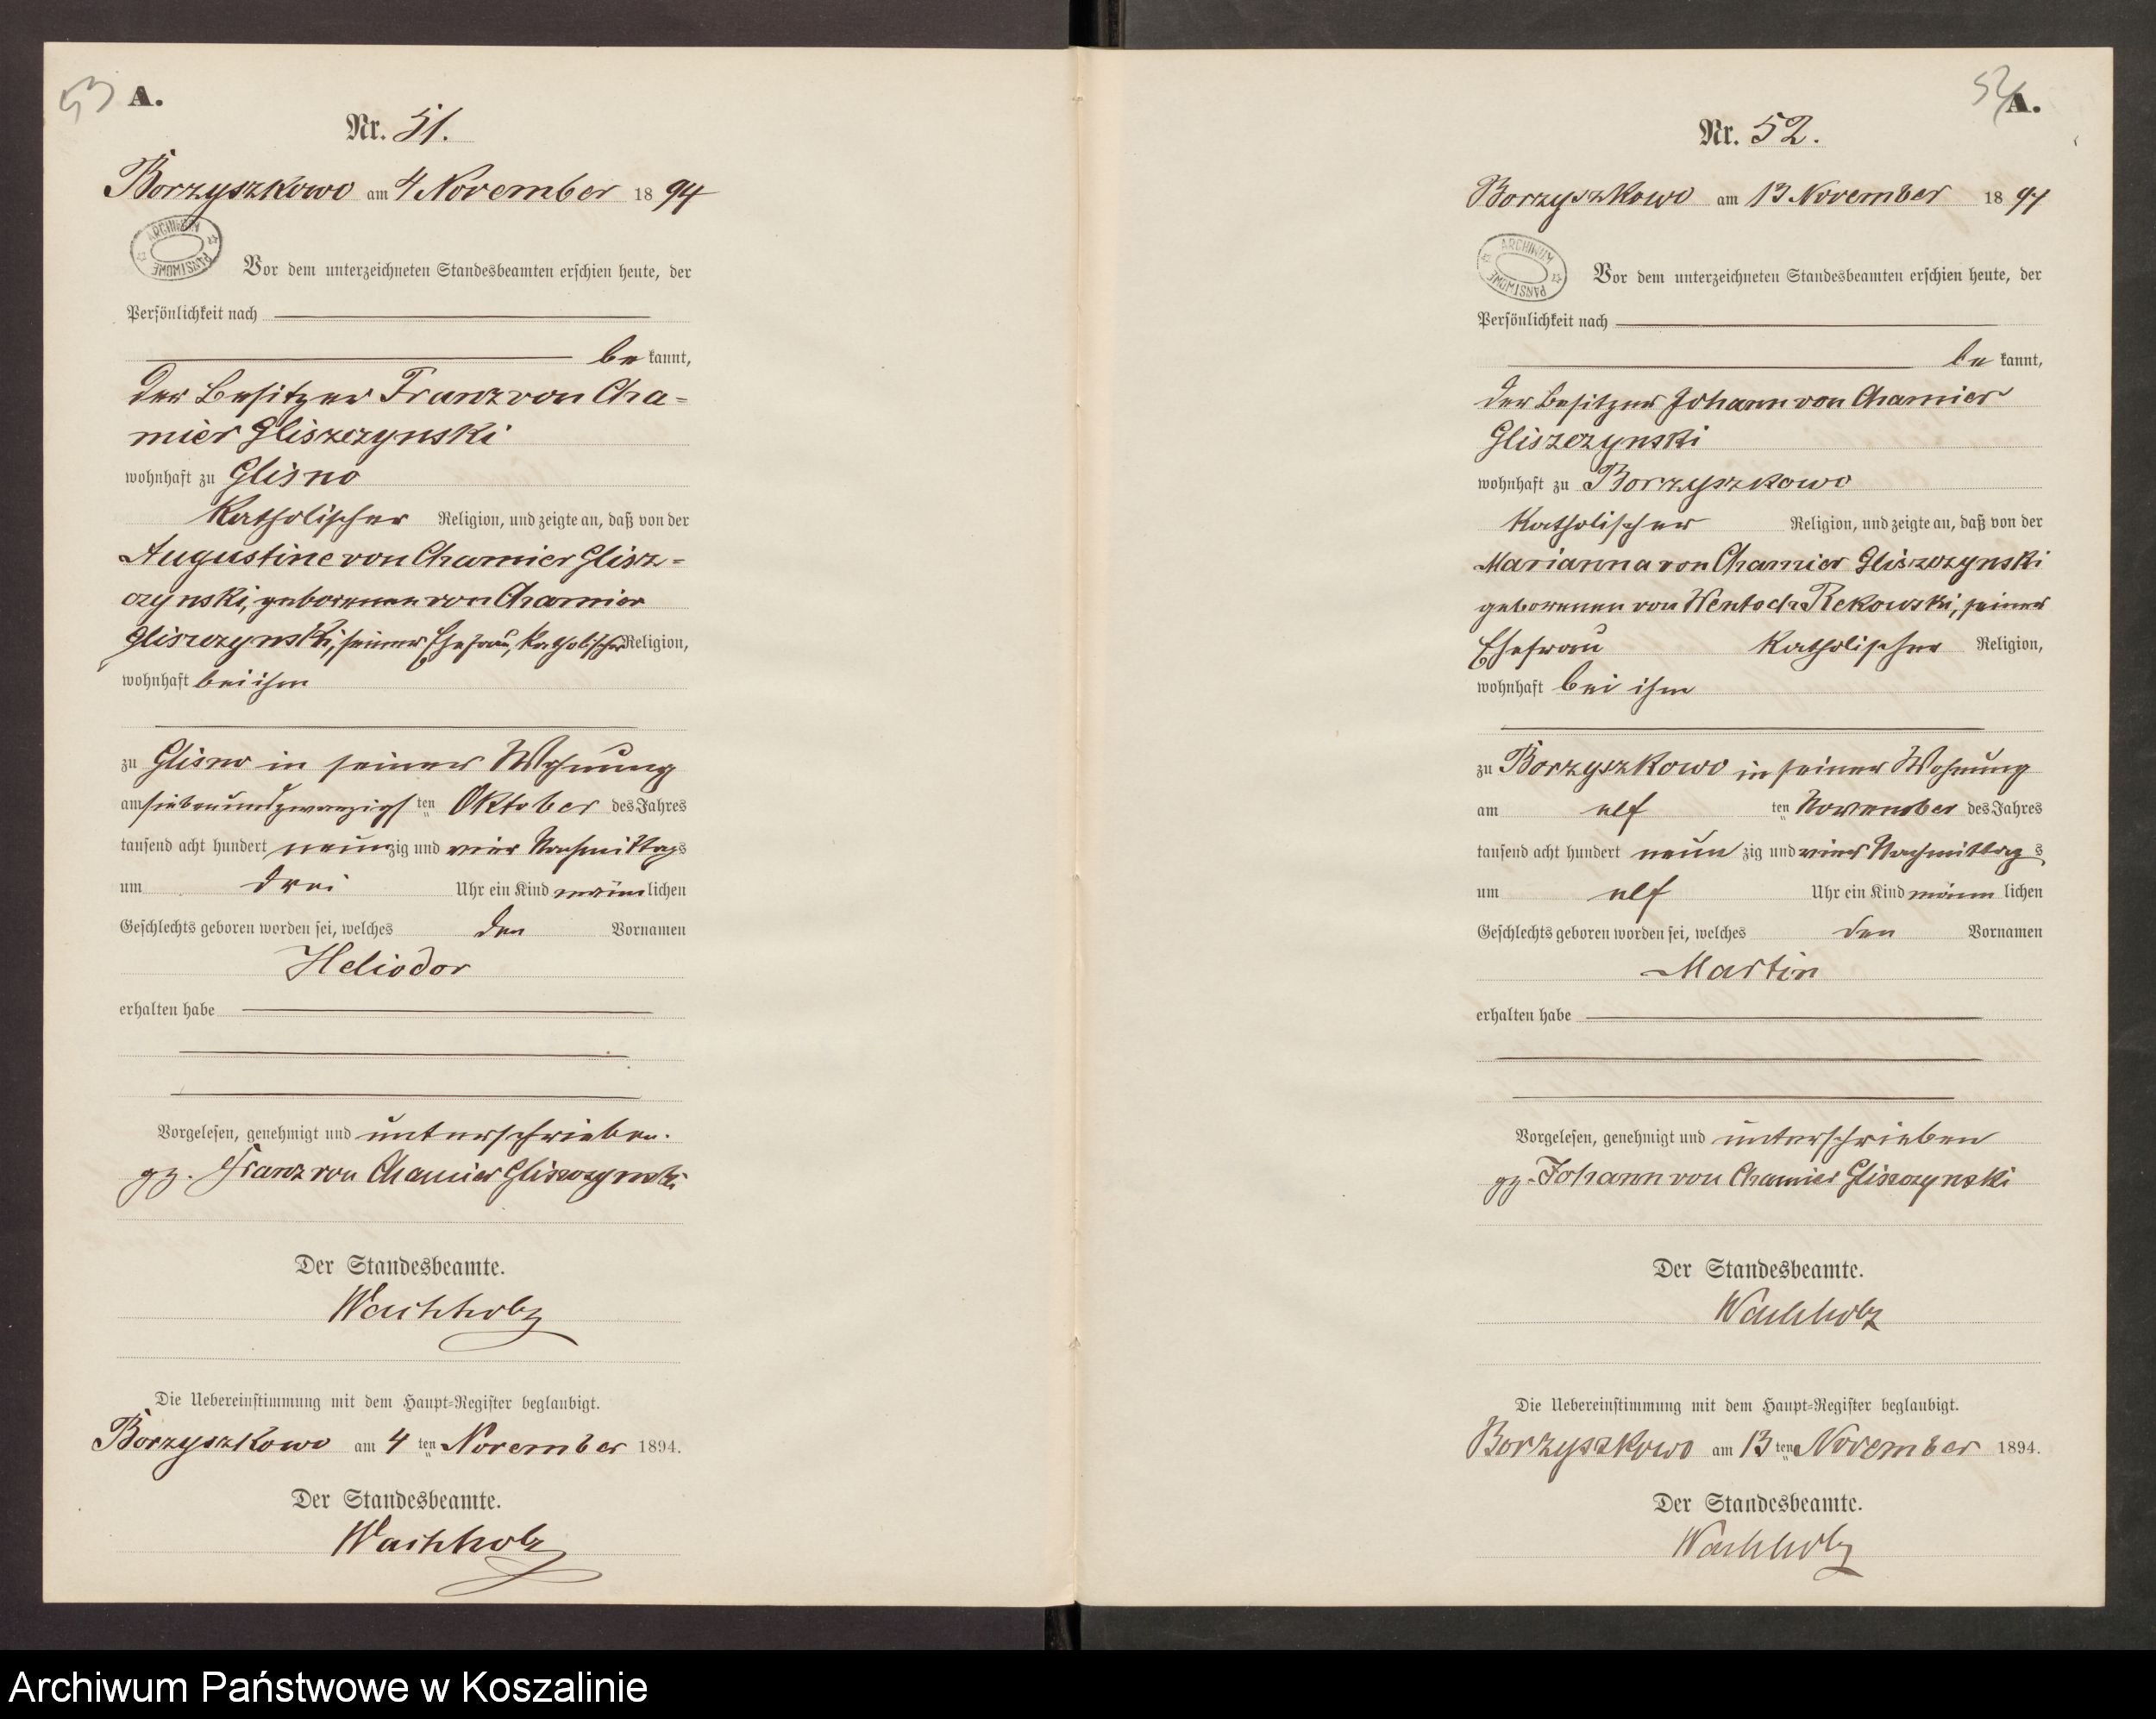 53 A.
Nr. 51.
Borzyszkowo am 4 November 1894
ARCHIWUM PAŃSTWOWE
Vor dem unterzeichneten Standesbeamten erschien heute, der
Persönlichkeit nach
be kannt,
der Besitzer Franz von Cha=
mier Gliszczynski
wohnhaft zu Glisno
katholischer Religion, und zeigte an, daß von der
Augustine von Chamier Glisz=
czynski, geborenen von Chamier
Gliszczynski, seiner Ehefrau, katholischer Religion,
wohnhaft bei ihm
zu Glisno in seiner Wohnung
am siebenundzwanzigsten Oktober des Jahres
tausend acht hundert neunzig und vier Nachmittags
um drei Uhr ein Kind männlichen
Geschlechts geboren worden sei, welches den Vornamen
Heliodor
erhalten habe
Vorgelesen, genehmigt und unterschrieben.
gz. Franz von Chamier Gliszczynski
Der Standesbeamte.
Wachholz
Die Uebereinstimmung mit dem Haupt=Register beglaubigt.
Borzyszkowo am 4 ten November 1894.
Der Standesbeamte.
Wachholz
A.
Nr. 52.
Borzyszkowo am 13 November 1894
ARCHIWUM PAŃSTWOWE
Vor dem unterzeichneten Standesbeamten erschien heute, der
Persönlichkeit nach
be kannt,
der Besitzer Johann von Chamier
Gliszczynski
wohnhaft zu Borzyszkowo
katholischer Religion, und zeigte an, daß von der
Marianna von Chamier Gliszczynski
geborenen von Wentoch Rekowski, seiner
Ehefrau katholischer Religion,
wohnhaft bei ihm
zu Borzyszkowo in seiner Wohnung
am elf ten November des Jahres
tausend acht hundert neun zig und vier Nachmittag s
um elf Uhr ein Kind männ lichen
Geschlechts geboren worden sei, welches den Vornamen
Martin
erhalten habe
Vorgelesen, genehmigt und unterschrieben
gz. Johann von Chamier Gliszczynski
Der Standesbeamte.
Wachholz
Die Uebereinstimmung mit dem Haupt=Register beglaubigt.
Borzyszkowo am 13 ten November 1894.
Der Standesbeamte.
Wachholz
Archiwum Państwowe w Koszalinie